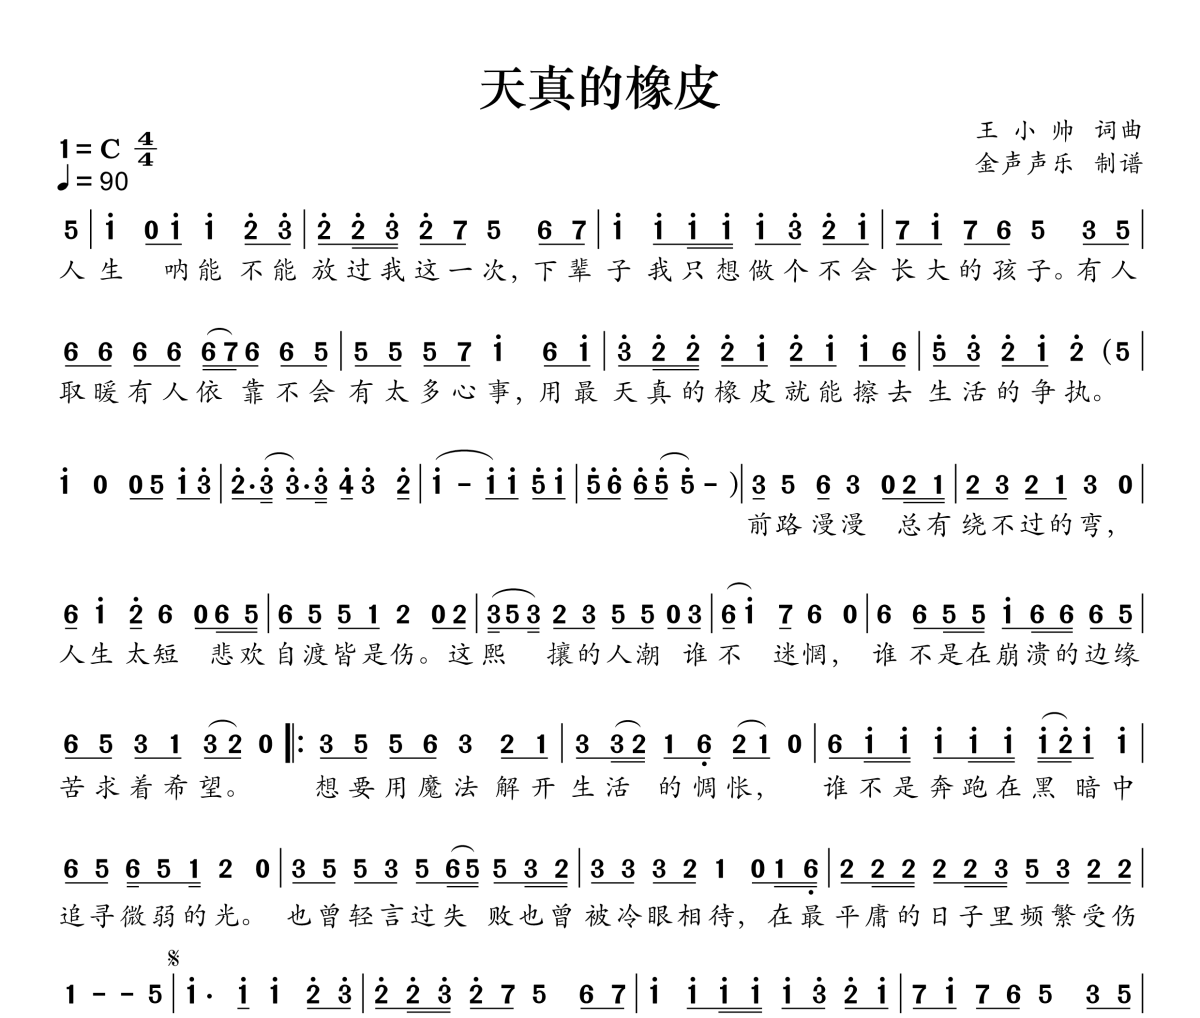 天真的橡皮
王小帅 词曲
1=C 4/4
金声声乐 制谱
♩=90
5 | i 0 i i 2 3 | 2 2 3 2 7 5 6 7 | i i i i i 3 2 i | 7 i 7 6 5 3 5 |
人生 呐能 不能 放过我这一次,下辈 子 我只想做个不会 长大的孩子。有人
6 6 6 6 6 7 6 6 5 | 5 5 5 7 i 6 i | 3 2 2 2 i 2 i i 6 | 5 3 2 i 2 (5 |
取暖有人依 靠不会 有太多心事,用最 天真的橡皮就能擦去 生活的争执。
i 0 0 5 i 3 | 2·3 3·3 4 3 2 | i - i i 5 i | 5 6 6 5 5 - ) | 3 5 6 3 0 2 1 | 2 3 2 1 3 0 |
前路漫漫 总有 绕不过的弯,
6 i 2 6 0 6 5 | 6 5 5 1 2 0 2 | 3 5 3 2 3 5 5 0 3 | 6 i 7 6 0 | 6 6 5 5 i 6 6 6 5 |
人生太短 悲欢 自渡皆是伤。这熙 攘的人潮 谁不 迷惘, 谁 不是在崩溃的边缘
6 5 3 1 3 2 0 ‖: 3 5 5 6 3 2 1 | 3 3 2 1 6 2 1 0 | 6 i i i i i i 2 i i |
苦求着希望。 想要用魔法 解开 生活 的惆怅, 谁不是奔跑在黑 暗中
6 5 6 5 1 2 0 | 3 5 5 3 5 6 5 5 3 2 | 3 3 3 2 1 0 1 6 | 2 2 2 2 2 3 5 3 2 2 |
追寻微弱的光。 也曾轻言过失 败也曾 被冷眼相待,在最 平庸的日子里频繁受伤
𝄋
1 - - 5 | i· i i 2 3 | 2 2 3 2 7 5 6 7 | i i i i i 3 2 i | 7 i 7 6 5 3 5 |